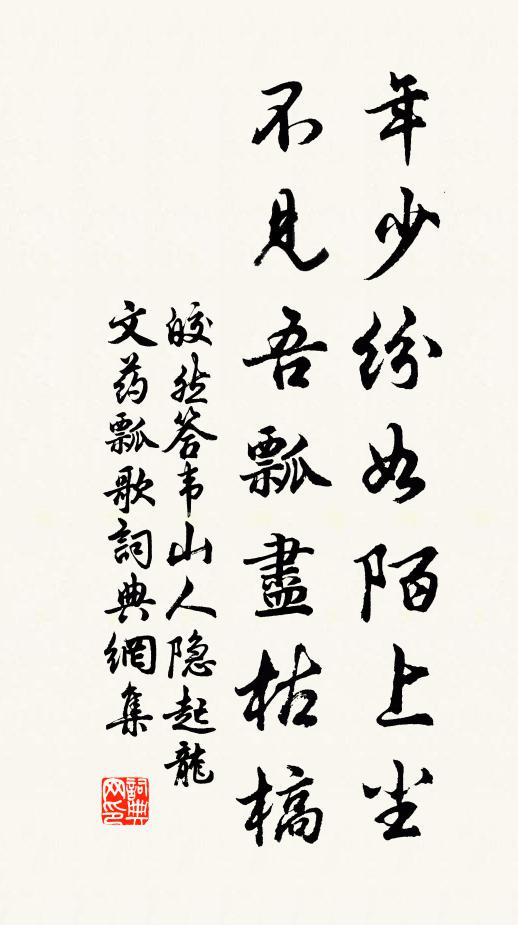 年少纷如陌上尘
不見吾瓢盡枯槁
皎然答韦山人隐起龍
文药瓢歌詞典網集
詞典网印